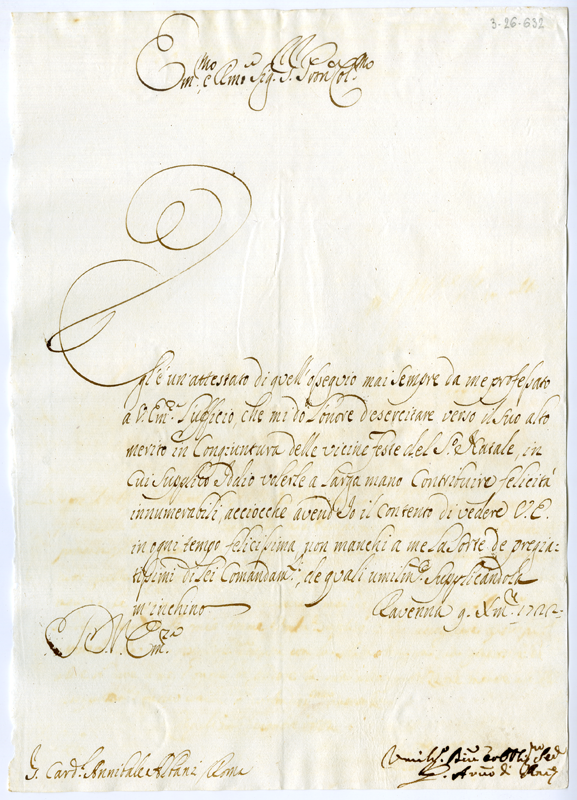 3-26-632
Em.mo e Rmo Sig. S. Pron Col.mo
Egl'è un'attestato di quell'ossequio mai sempre da me professato
a V. Em.a l'ufficio, che mi dò l'onore d'esercitare verso il suo alto
merito in Congiuntura delle vicine feste del S.o Natale, in
cui supplico Iddio valerle a larga mano Contribuire felicità
innumerabili, acciocche avend'Io il Contento di vedere V. E.
in ogni tempo felicissima, non manchi a me la sorte de pregia-
tissimi di Lei Comandam.ti, de quali umilm.te supplicandola
m'inchino Ravenna 9. Xm.re 172
D. V. Em.za
S. Card.l Annibale Albani Roma
Umil.o Div.o ed Obb.mo
di